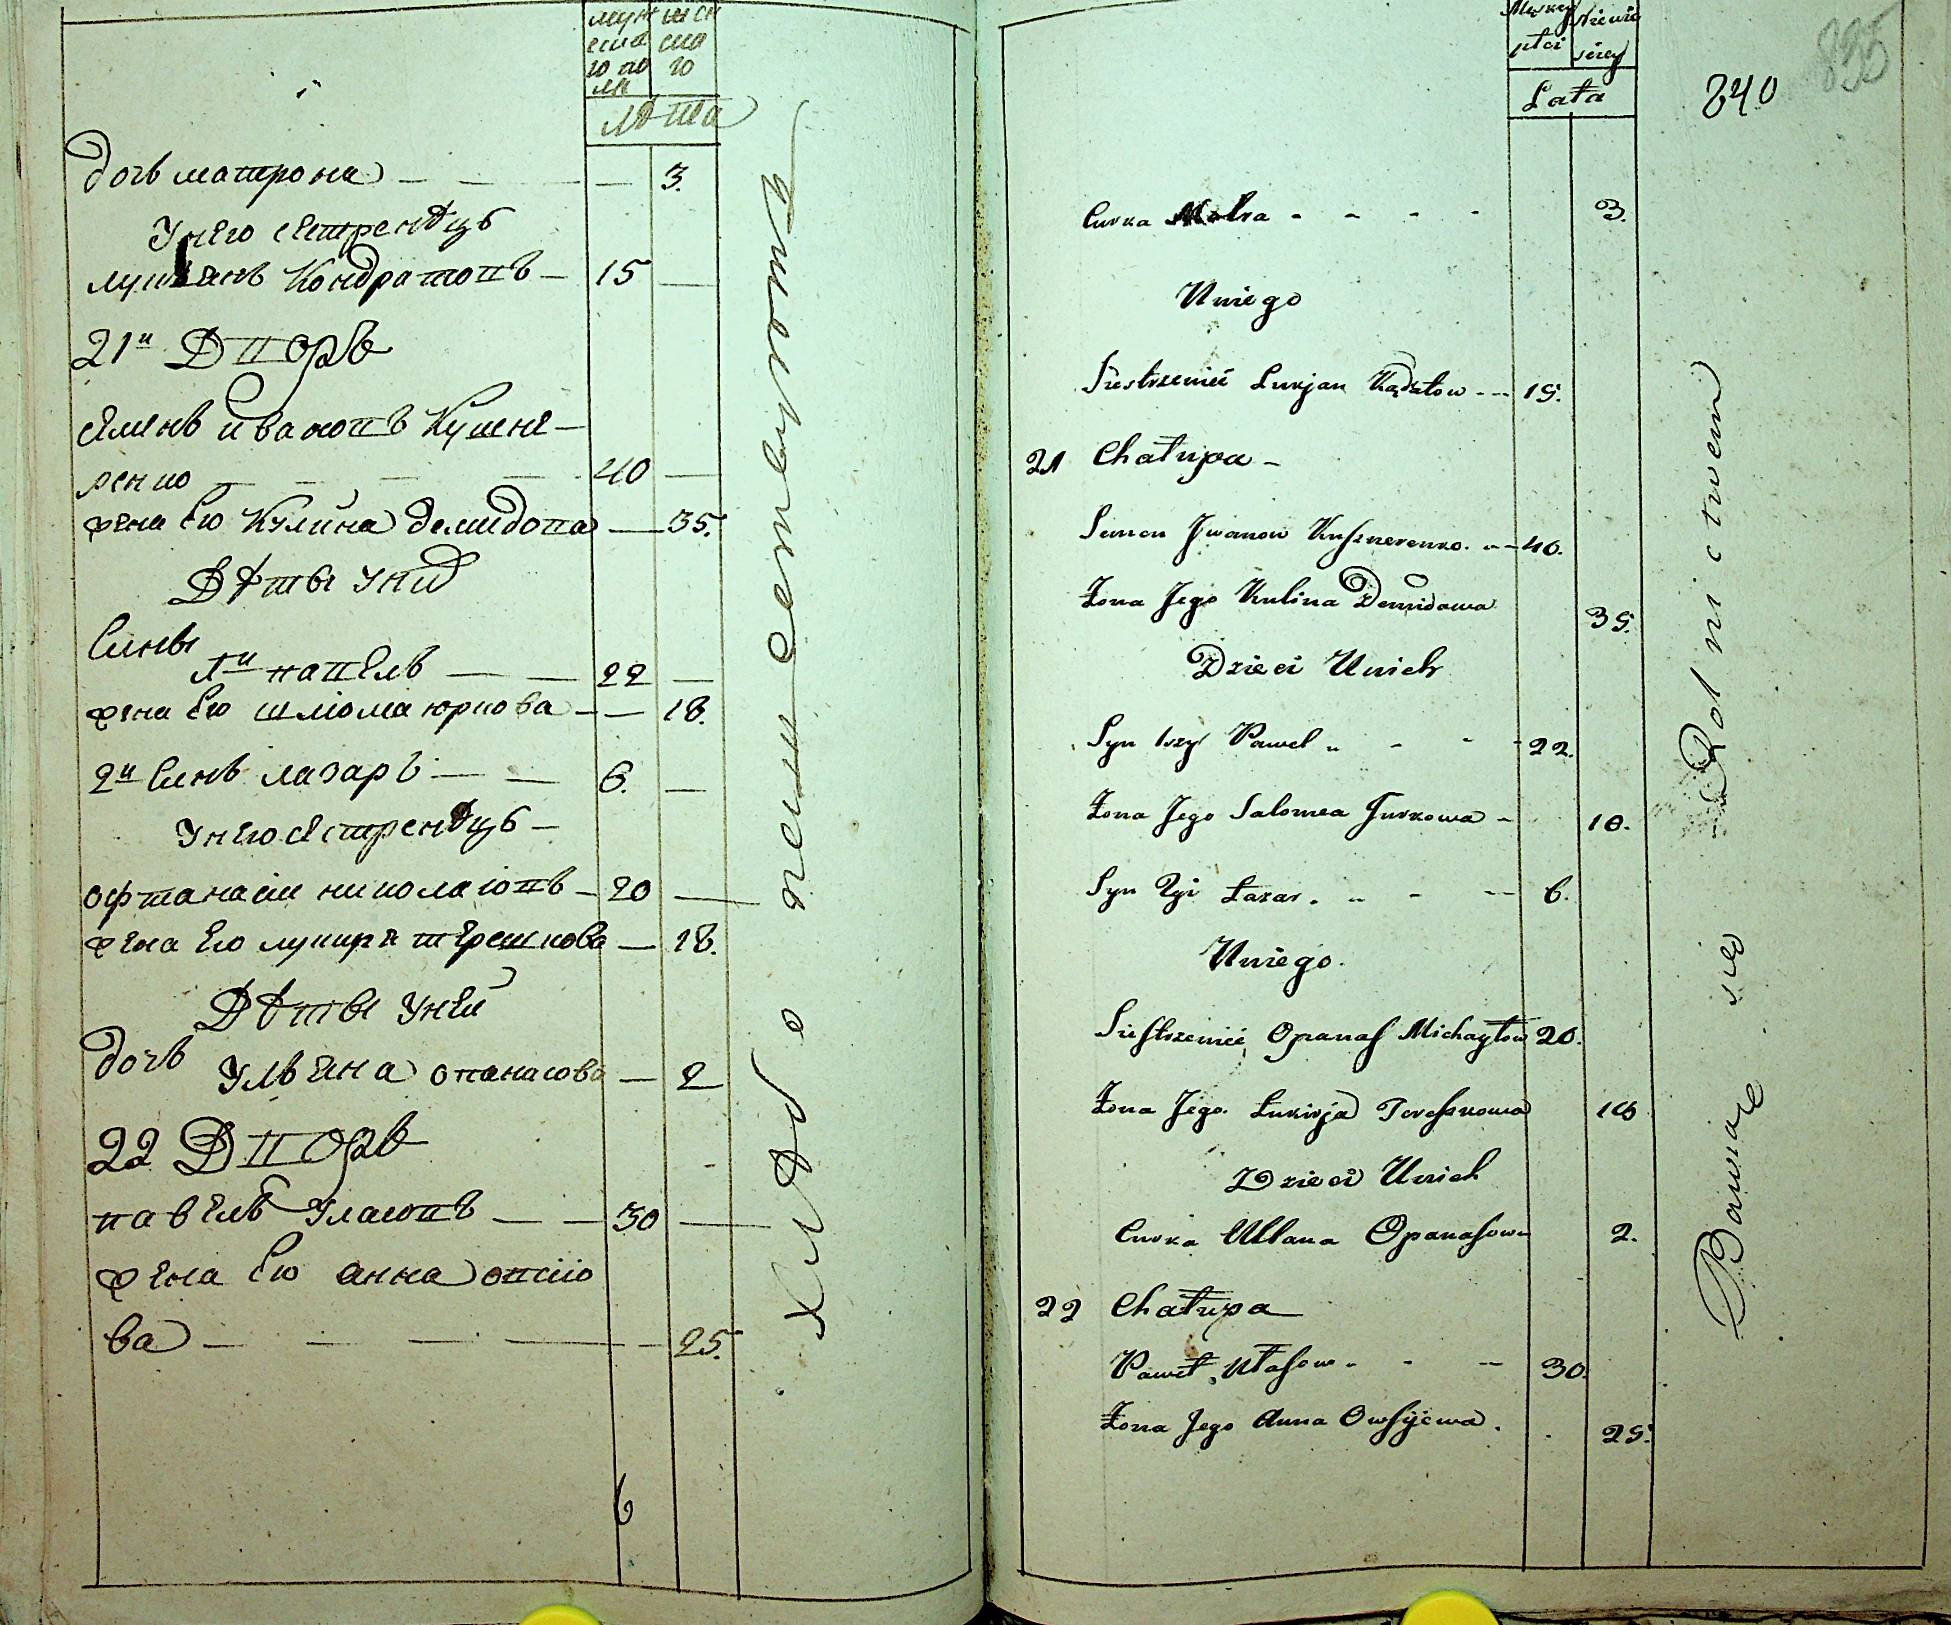 муж
еска
го по
ла
женска
го
лѣта
дочь матрона — — — 3.
Унего сестренѣцъ
лукянъ Кондратовъ — 15 —
21й Дворъ
семенъ ивановъ Кушне-
ренко — — — 40 —
жена Его Кулина демидова — 35.
Дѣты Уних
Сины
1й павелъ — — 22 —
жена Его шлiома юркова — — 18.
2й Синъ лазаръ — — 6. —
Унего сестренѣцъ —
офтанасий николаiовъ — 20 —
жена Его лукиря терешкова — 18.
Дѣты Уней
дочь Ульяна опанасова — 2
22 Дворъ
павелъ Уласовъ — — 30 —
жена Его анна овсiю
ва — — — — 25.
6
хлѣбопашествуютъ
Męzkiey płci
Niewie sciey
Lata
840
835
Curka Motra - - - - 3.
Uniego
Siestrzeniec Lukjan Kądratow --- 15.
21 Chałupa -
Semen Jwanow Kusznerenko. -- 40.
Żona Jego Kulina Demidowa 35.
Dzieci Unich
Syn 1szy Paweł - - - - 22.
Żona Jego Salomea Jurkowa - 18.
Syn 2gi Łazar. - - -- 6.
Uniego.
Siestrzeniec Opanas Michayłow 20.
Żona Jego. Łukirja Tereszkowa 18
Dzieci Unich
Curka Ullana Opanasowa 2.
22 Chałupa
Paweł Ułasow - - -- 30.
Żona Jego Anna Owsijewa. . 25.
Bawiąc się Rolnictwem